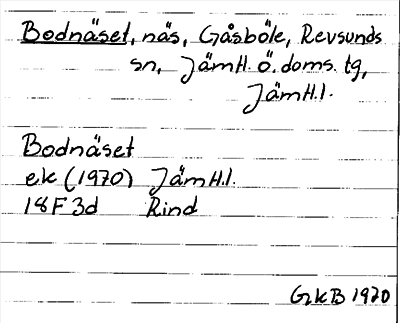 Bodnäset, näs, Gåsböle, Revsunds
sn, Jämtl. ö. doms. tg,
Jämtl.l.
Bodnäset
ek (1970) Jämtl.l.
18F3d Rind
GkB 1970